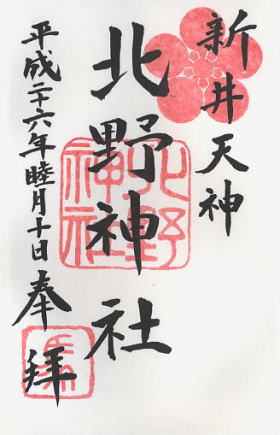 新井天神
北野神社
平成二十六年睦月十日
奉拝
北野神社